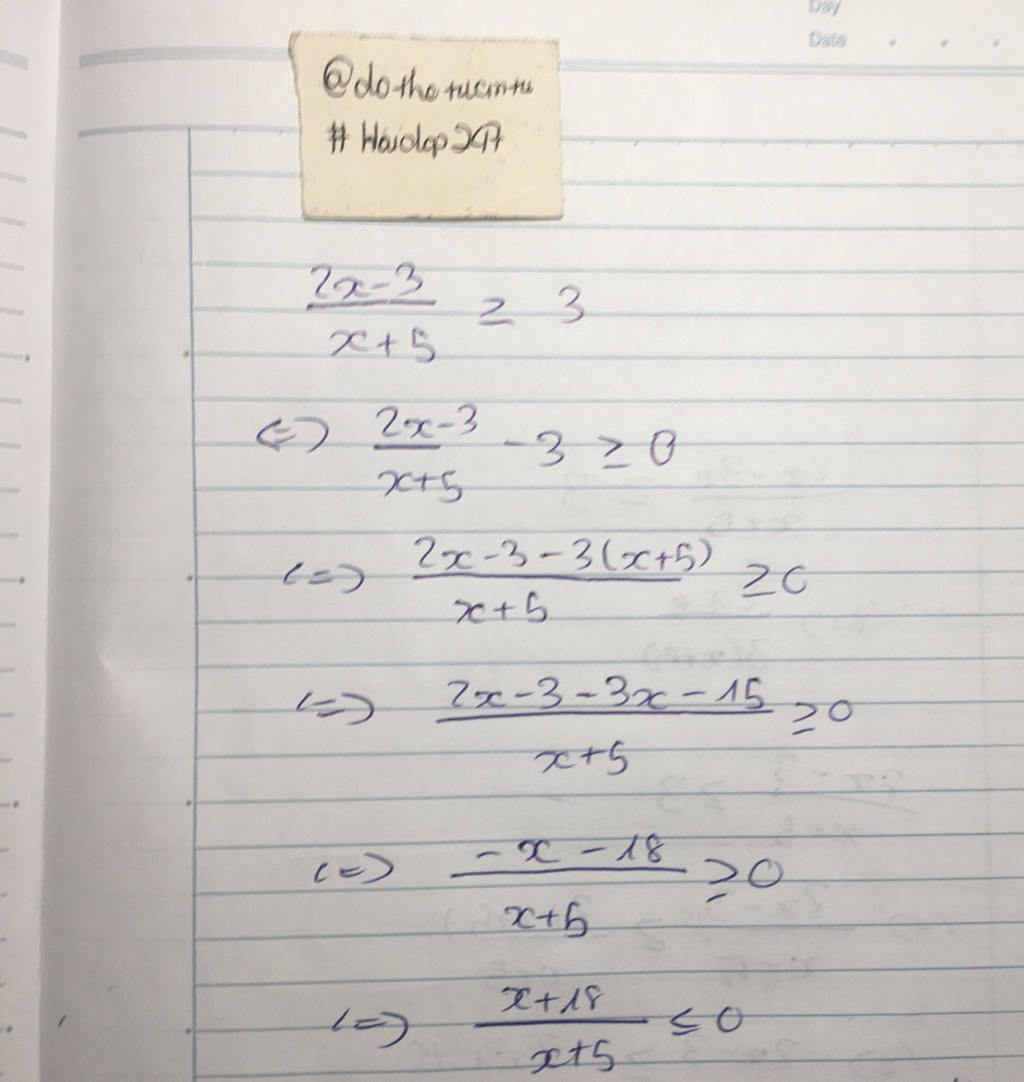 Day
Date
@dothetucmtu
# Haidep247
2x-3/x+5 ≥ 3
<=> 2x-3/x+5 -3 ≥ 0
<=> 2x-3-3(x+5)/x+5 ≥0
<=> 2x-3-3x-15/x+5 ≥0
<=> -x-18/x+5 ≥0
<=> x+18/x+5 ≤ 0